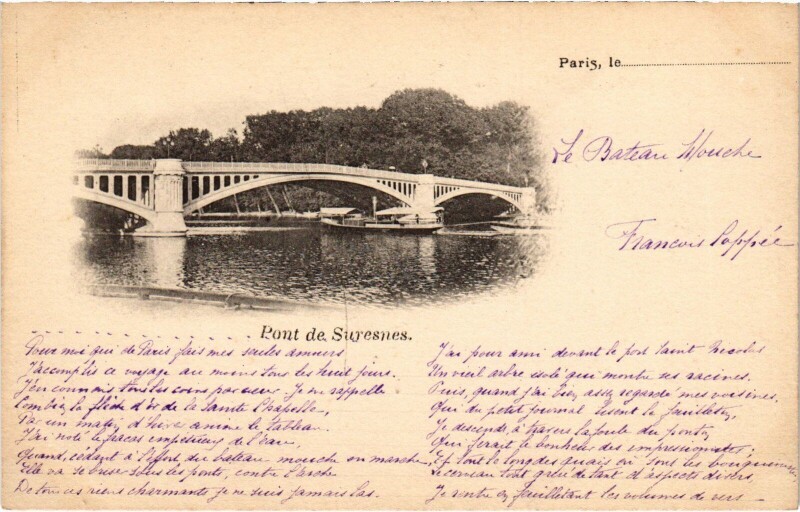 Paris, le
Le Bateau Mouche
François Coppée
Pont de Suresnes.
Pour moi qui de Paris fais mes seules amours
J'accomplis ce voyage au moins tous les huit jours.
J'en connais tous les coins par cœur. Je me rappelle
Combien la flèche d'or de la Sainte Chapelle,
Par un matin d'hiver anime le tableau
J'ai noté le fracas impétueux de l'eau,
Quand, cédant à l'effort du bateau mouche en marche,
Elle va se briser sous les ponts, contre l'arche
De tous ces riens charmants je ne suis jamais las.
J'ai pour ami devant le port Saint Nicolas
Un vieil arbre isolé qui montre ses racines.
Puis, quand j'ai bien assez regardé mes voisines
Qui du petit journal lisent le feuilleton,
Je descends, à travers la foule du ponton
Qui ferait le bonheur des impressionnistes,
Et tout le long des quais où sont les bouquinistes
Le cerveau tout grisé de tant d'aspects divers,
Je rentre en feuilletant les volumes de vers